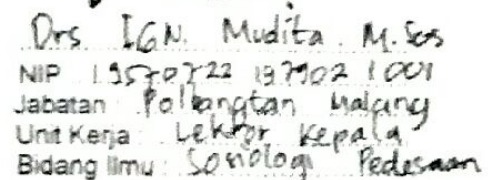 Drs IGN. Mudita. M.Sos
NIP 19570722 197902 1 001
Jabatan Polbangtan Malang
Unit Kerja Lektor Kepala
Bidang Ilmu : Sosiologi Pedesaan